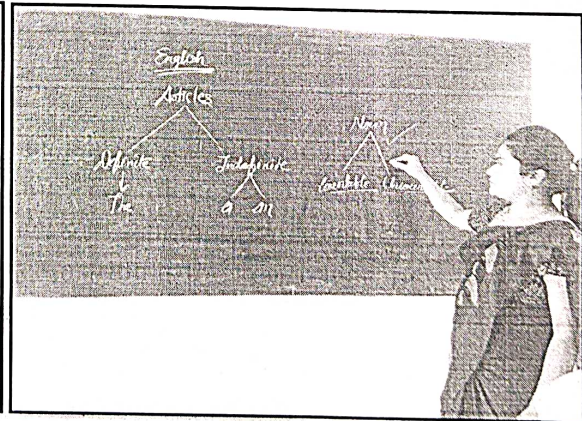 English
Articles
Definite
Indefinite
The
a an
Noun
Countable Uncountable